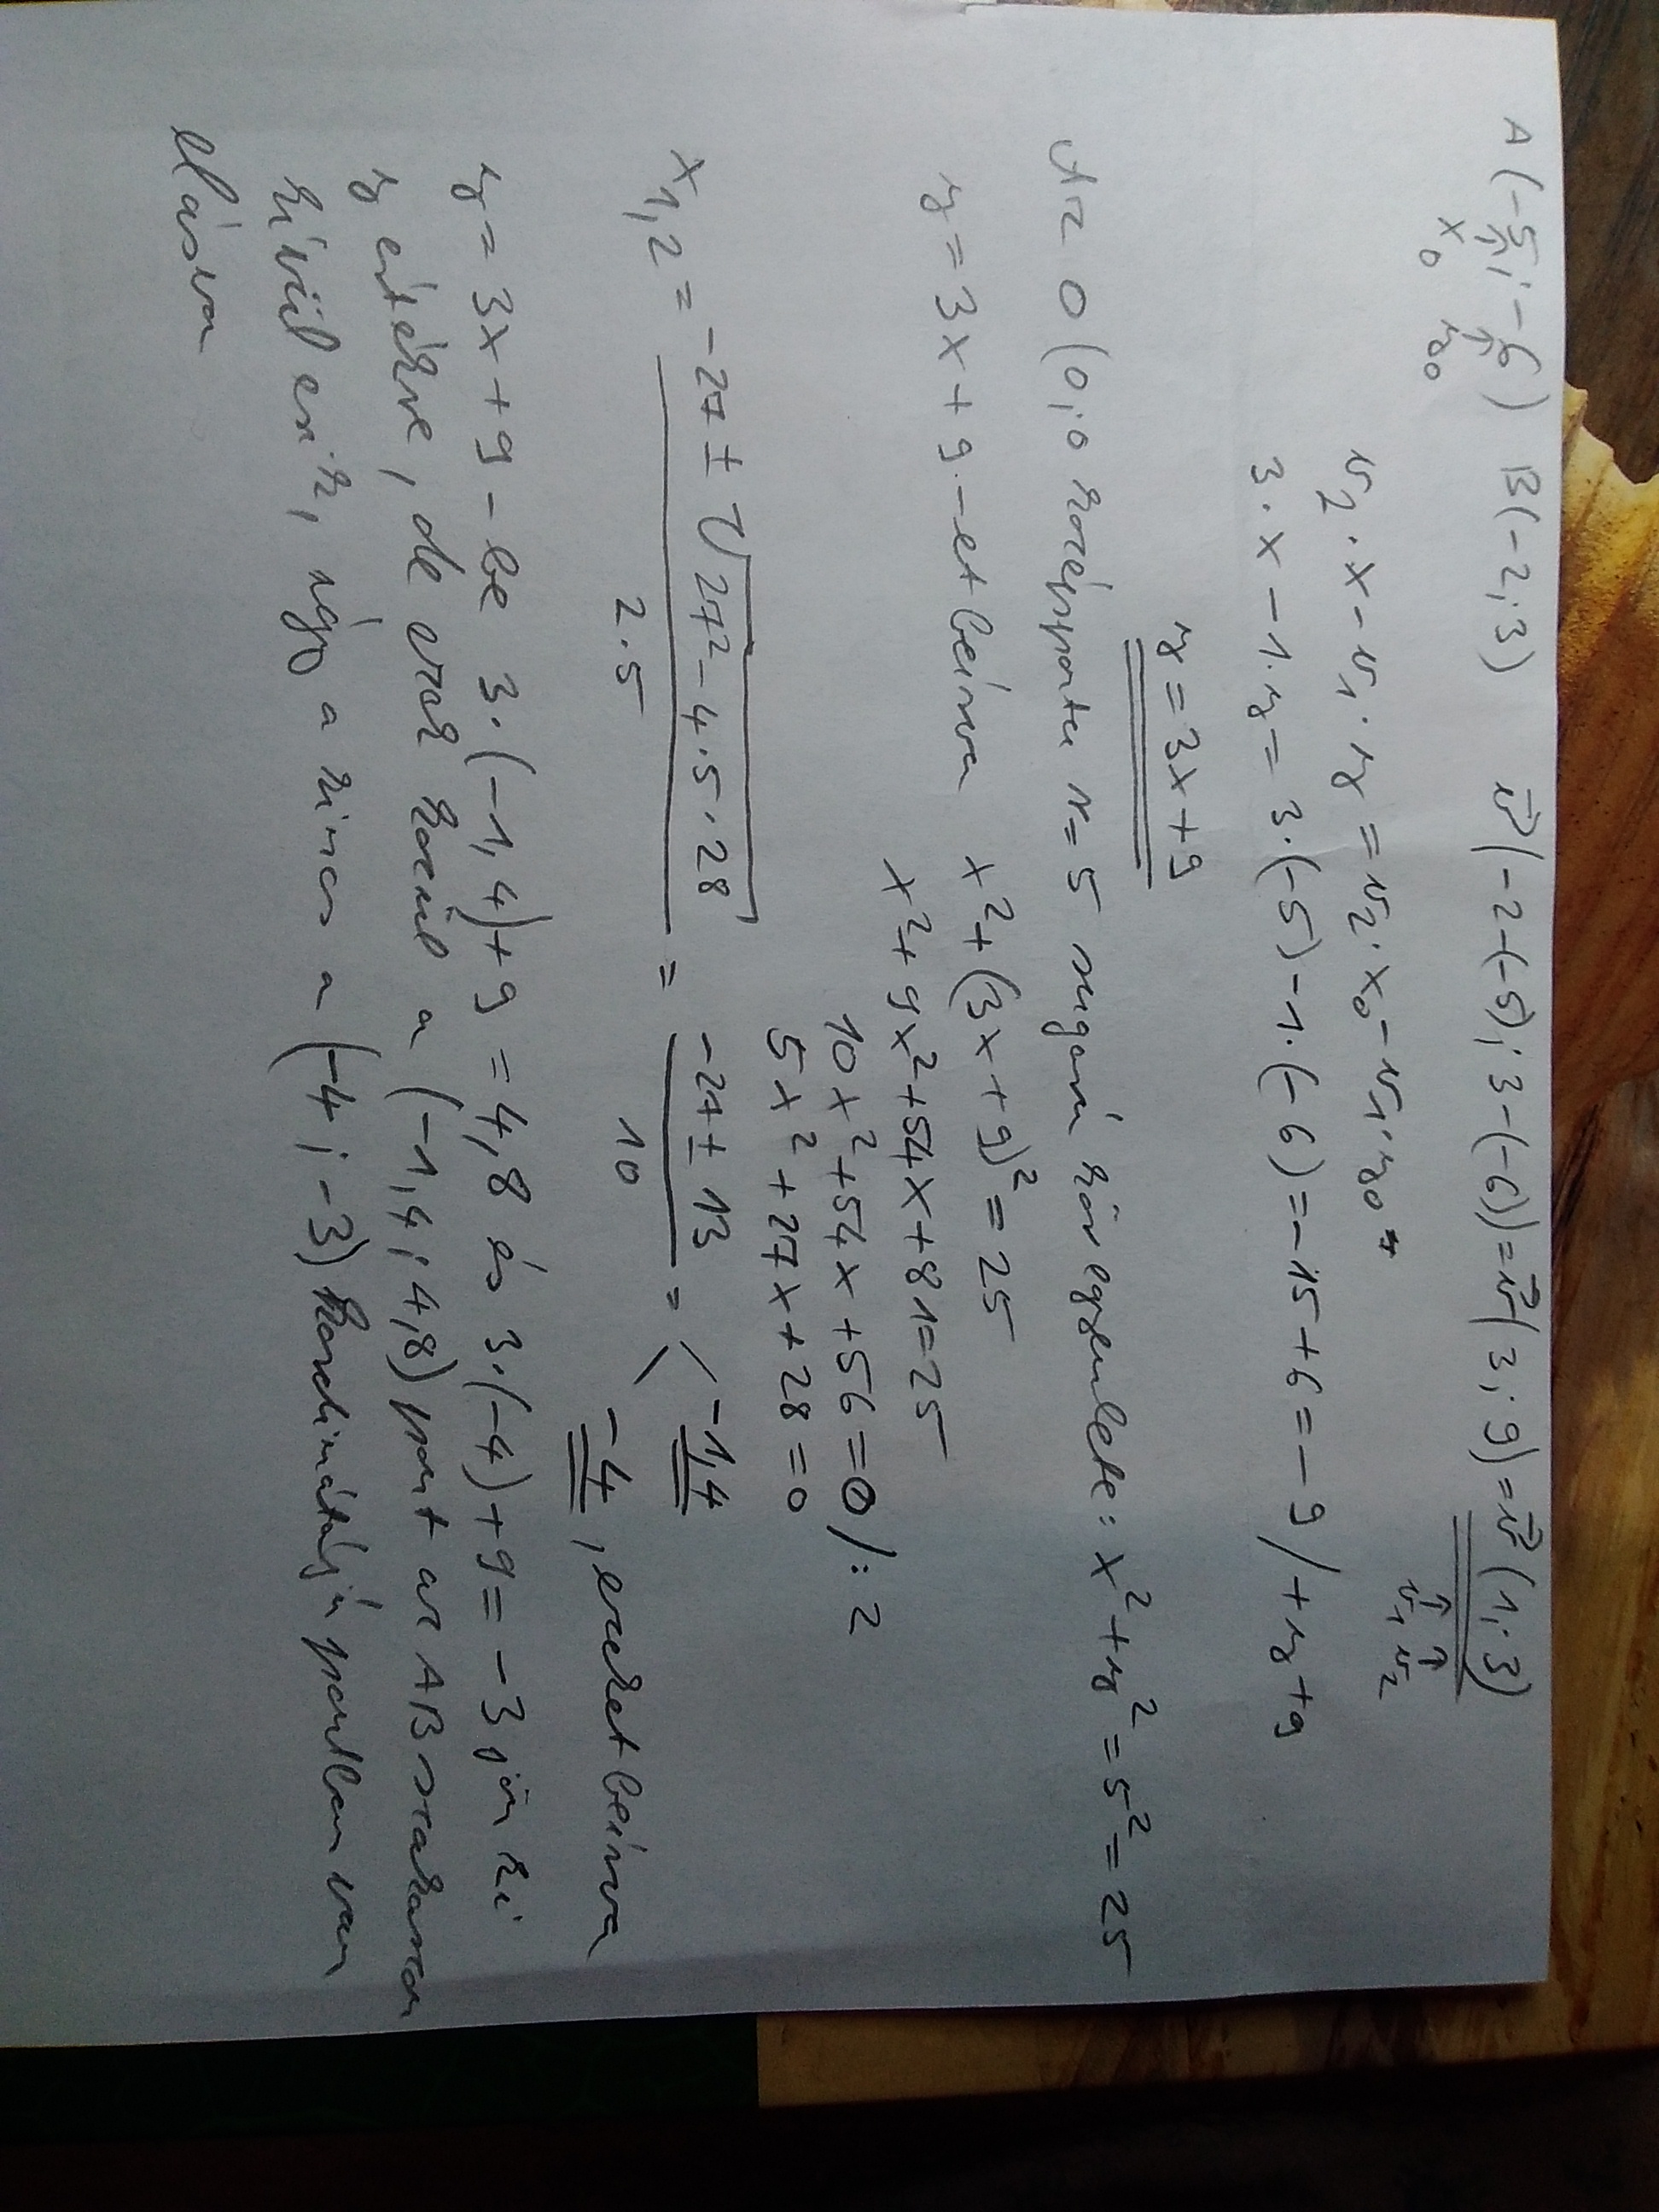 A(-5; -6) B(-2; 3) v⃗(-2-(-5); 3-(-6)) = v⃗(3; 9) = v⃗(1; 3)
↑ ↑ ↑ ↑
x₀ y₀ v₁ v₂
v₂·x - v₁·y = v₂·x₀ - v₁·y₀
3·x - 1·y = 3·(-5) - 1·(-6) = -15 + 6 = -9 / +y +9
y = 3x + 9
Az O(0;0 középpontu r=5 sugarú kör egyenlete: x² + y² = 5² = 25
y = 3x + 9 -et beírva x² + (3x + 9)² = 25
x² + 9x² + 54x + 81 = 25
10x² + 54x + 56 = 0 /: 2
5x² + 27x + 28 = 0
x₁,₂ = (-27 ± √(27² - 4·5·28)) / (2·5) = (-27 ± 13) / 10 = < -1,4
-4, ezeket beírva
y = 3x + 9 - be 3·(-1,4) + 9 = 4,8 és 3·(-4) + 9 = -3 jön ki
y értékre, de ezek közül a (-1,4; 4,8) pont az AB szakaszon
kívül esik, így a kincs a (-4; -3) koordinátájú pontban van
elásva